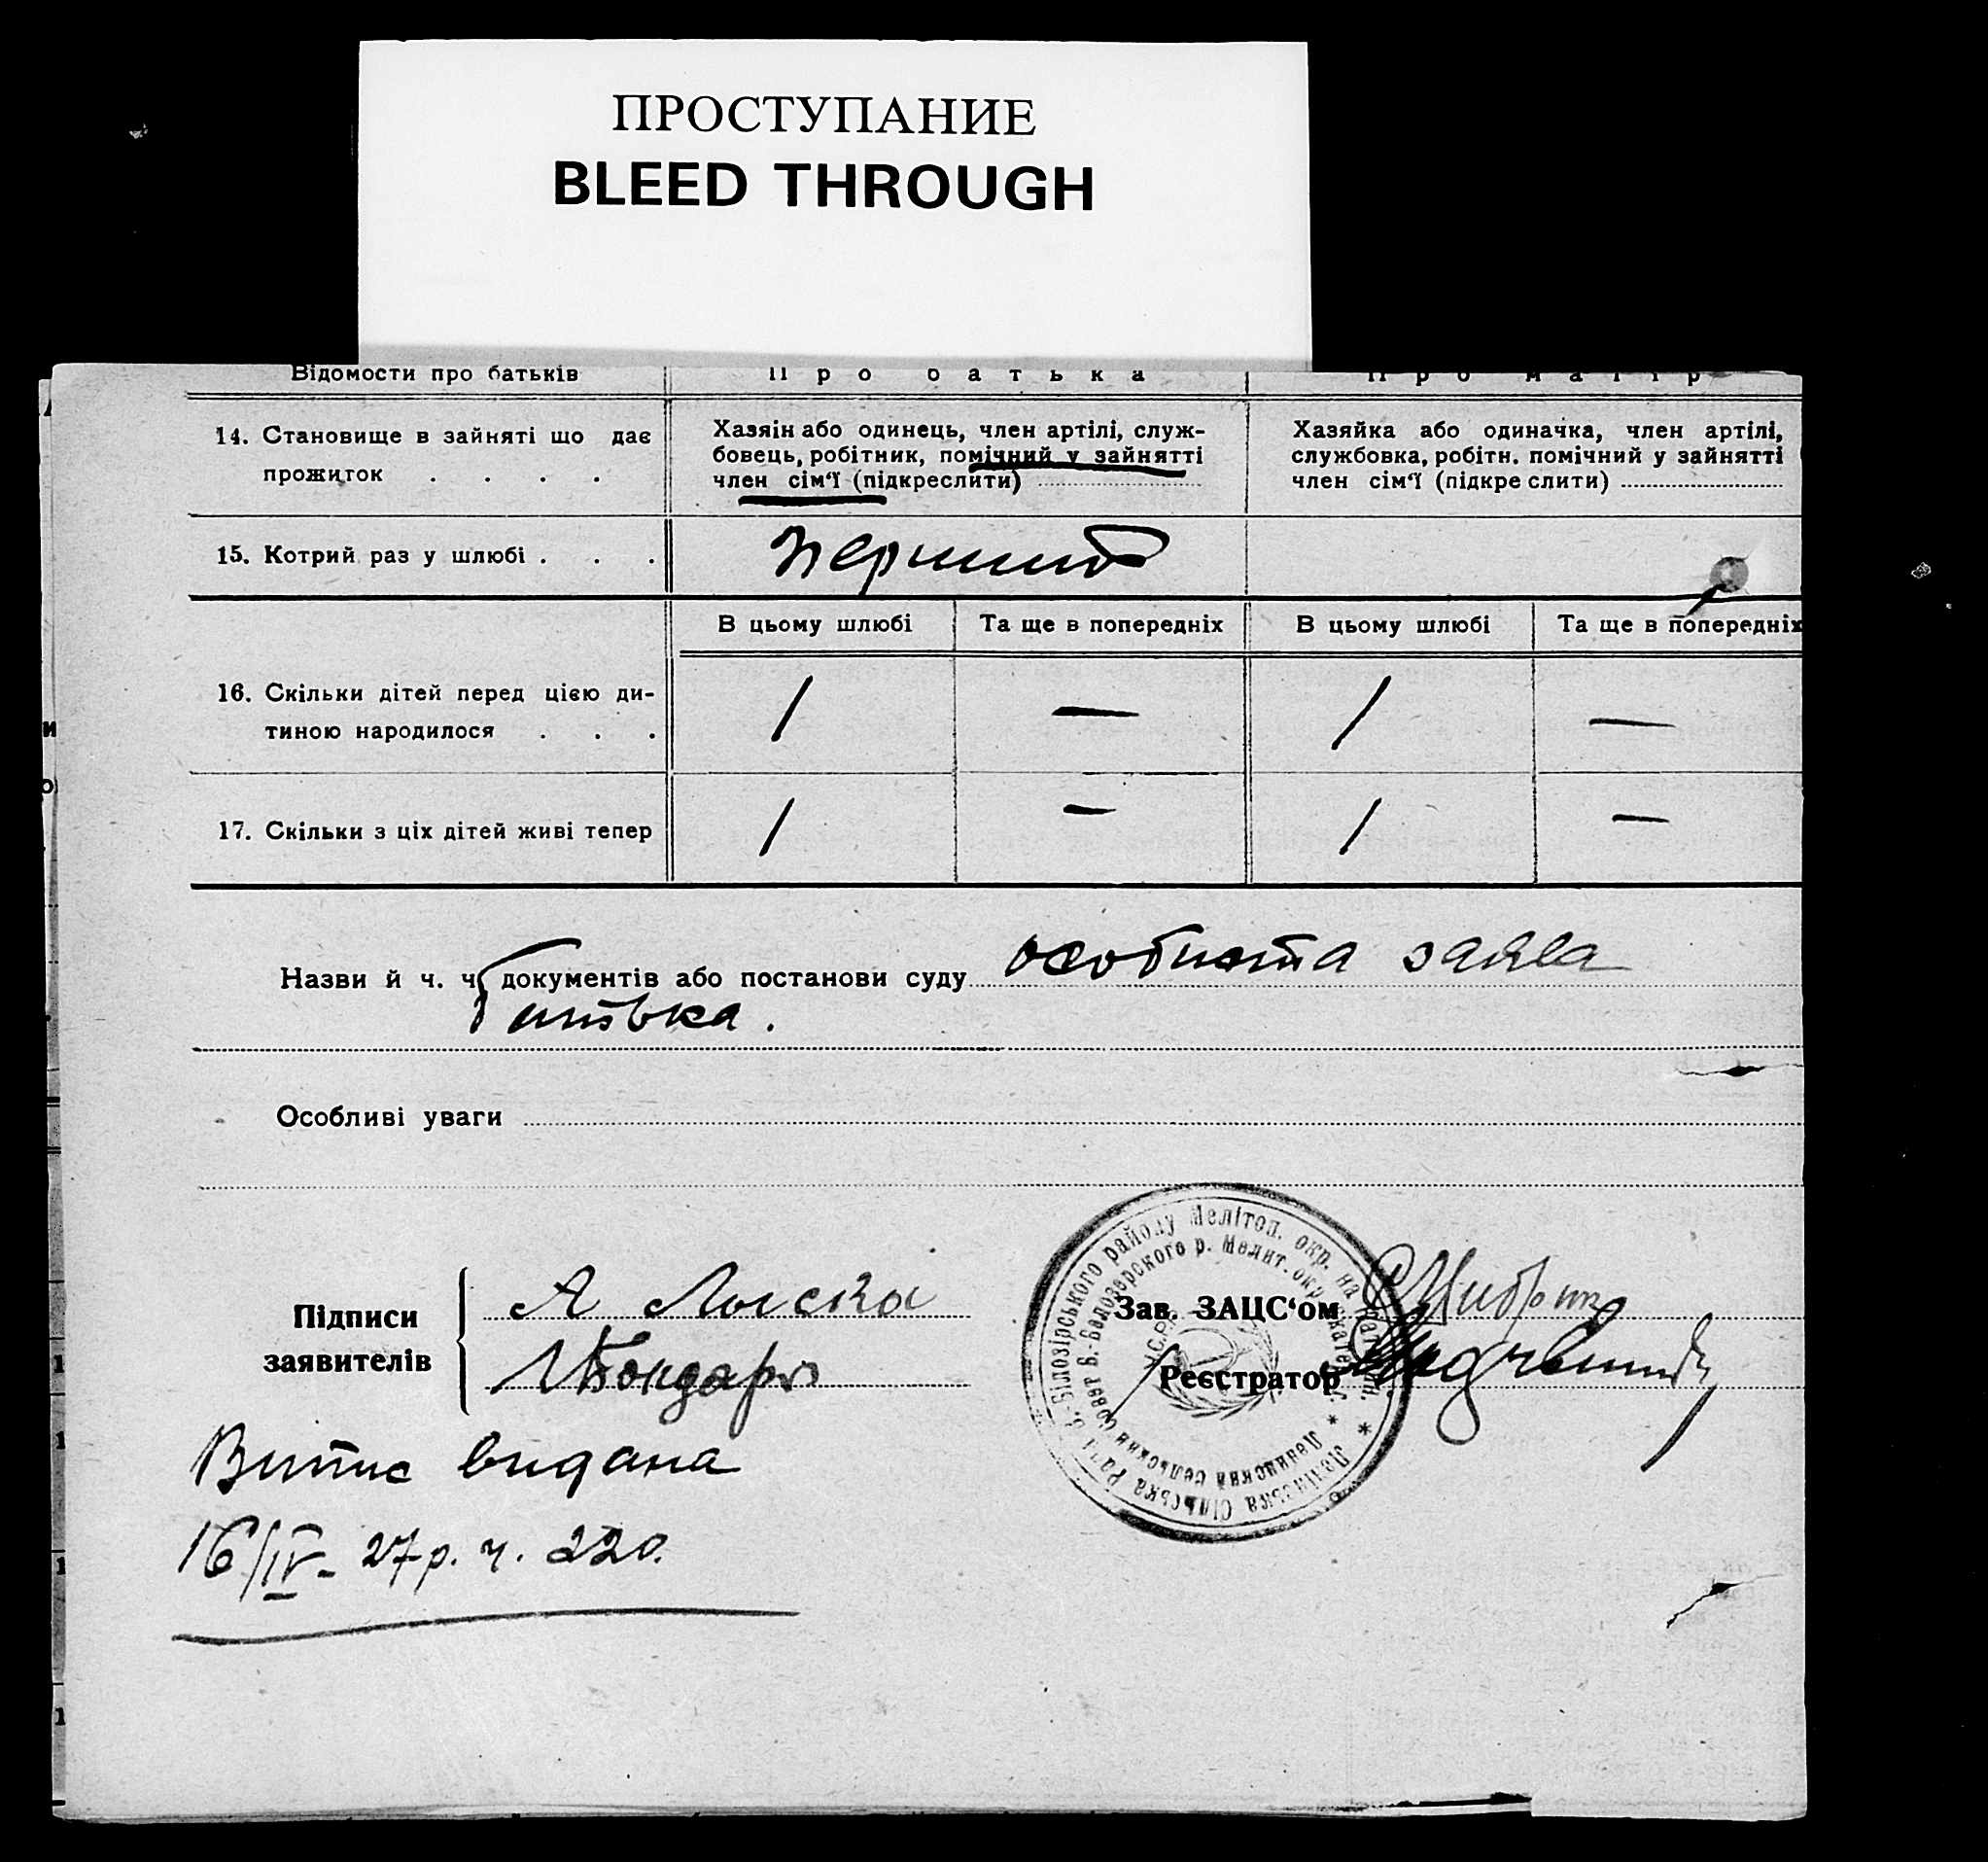 ПРОСТУПАНИЕ
BLEED THROUGH
Відомости про батьків
Про батька
Про матір
14. Становище в зайняті що дає
прожиток . . . .
Хазяін або одинець, член артілі, служ-
бовець, робітник, помічний у зайнятті
член сім‘ї (підкреслити)
Хазяйка або одиначка, член артілі,
службовка, робітн. помічний у зайнятті
член сім‘ї (підкреслити)
15. Котрий раз у шлюбі . . .
перший
В цьому шлюбі
Та ще в попередніх
В цьому шлюбі
Та ще в попередніх
16. Скільки дітей перед цією ди-
тиною народилося . . .
1 — 1 —
17. Скільки з ціх дітей живі тепер
1 — 1 —
Назви й ч. ч. документів або постанови суду особиста заява
батька.
Особливі уваги
Підписи
заявителів
А
Бондарь
Зав. ЗАЦС‘ом
Реєстратор
Ленінська Сільська Рада В.-Білозірського району Мелітоп. окр. на
Ленинский сельский совет В.-Белозерского р. Мелит. окр.
Витис видана
16/IV- 27р. ч. 220.